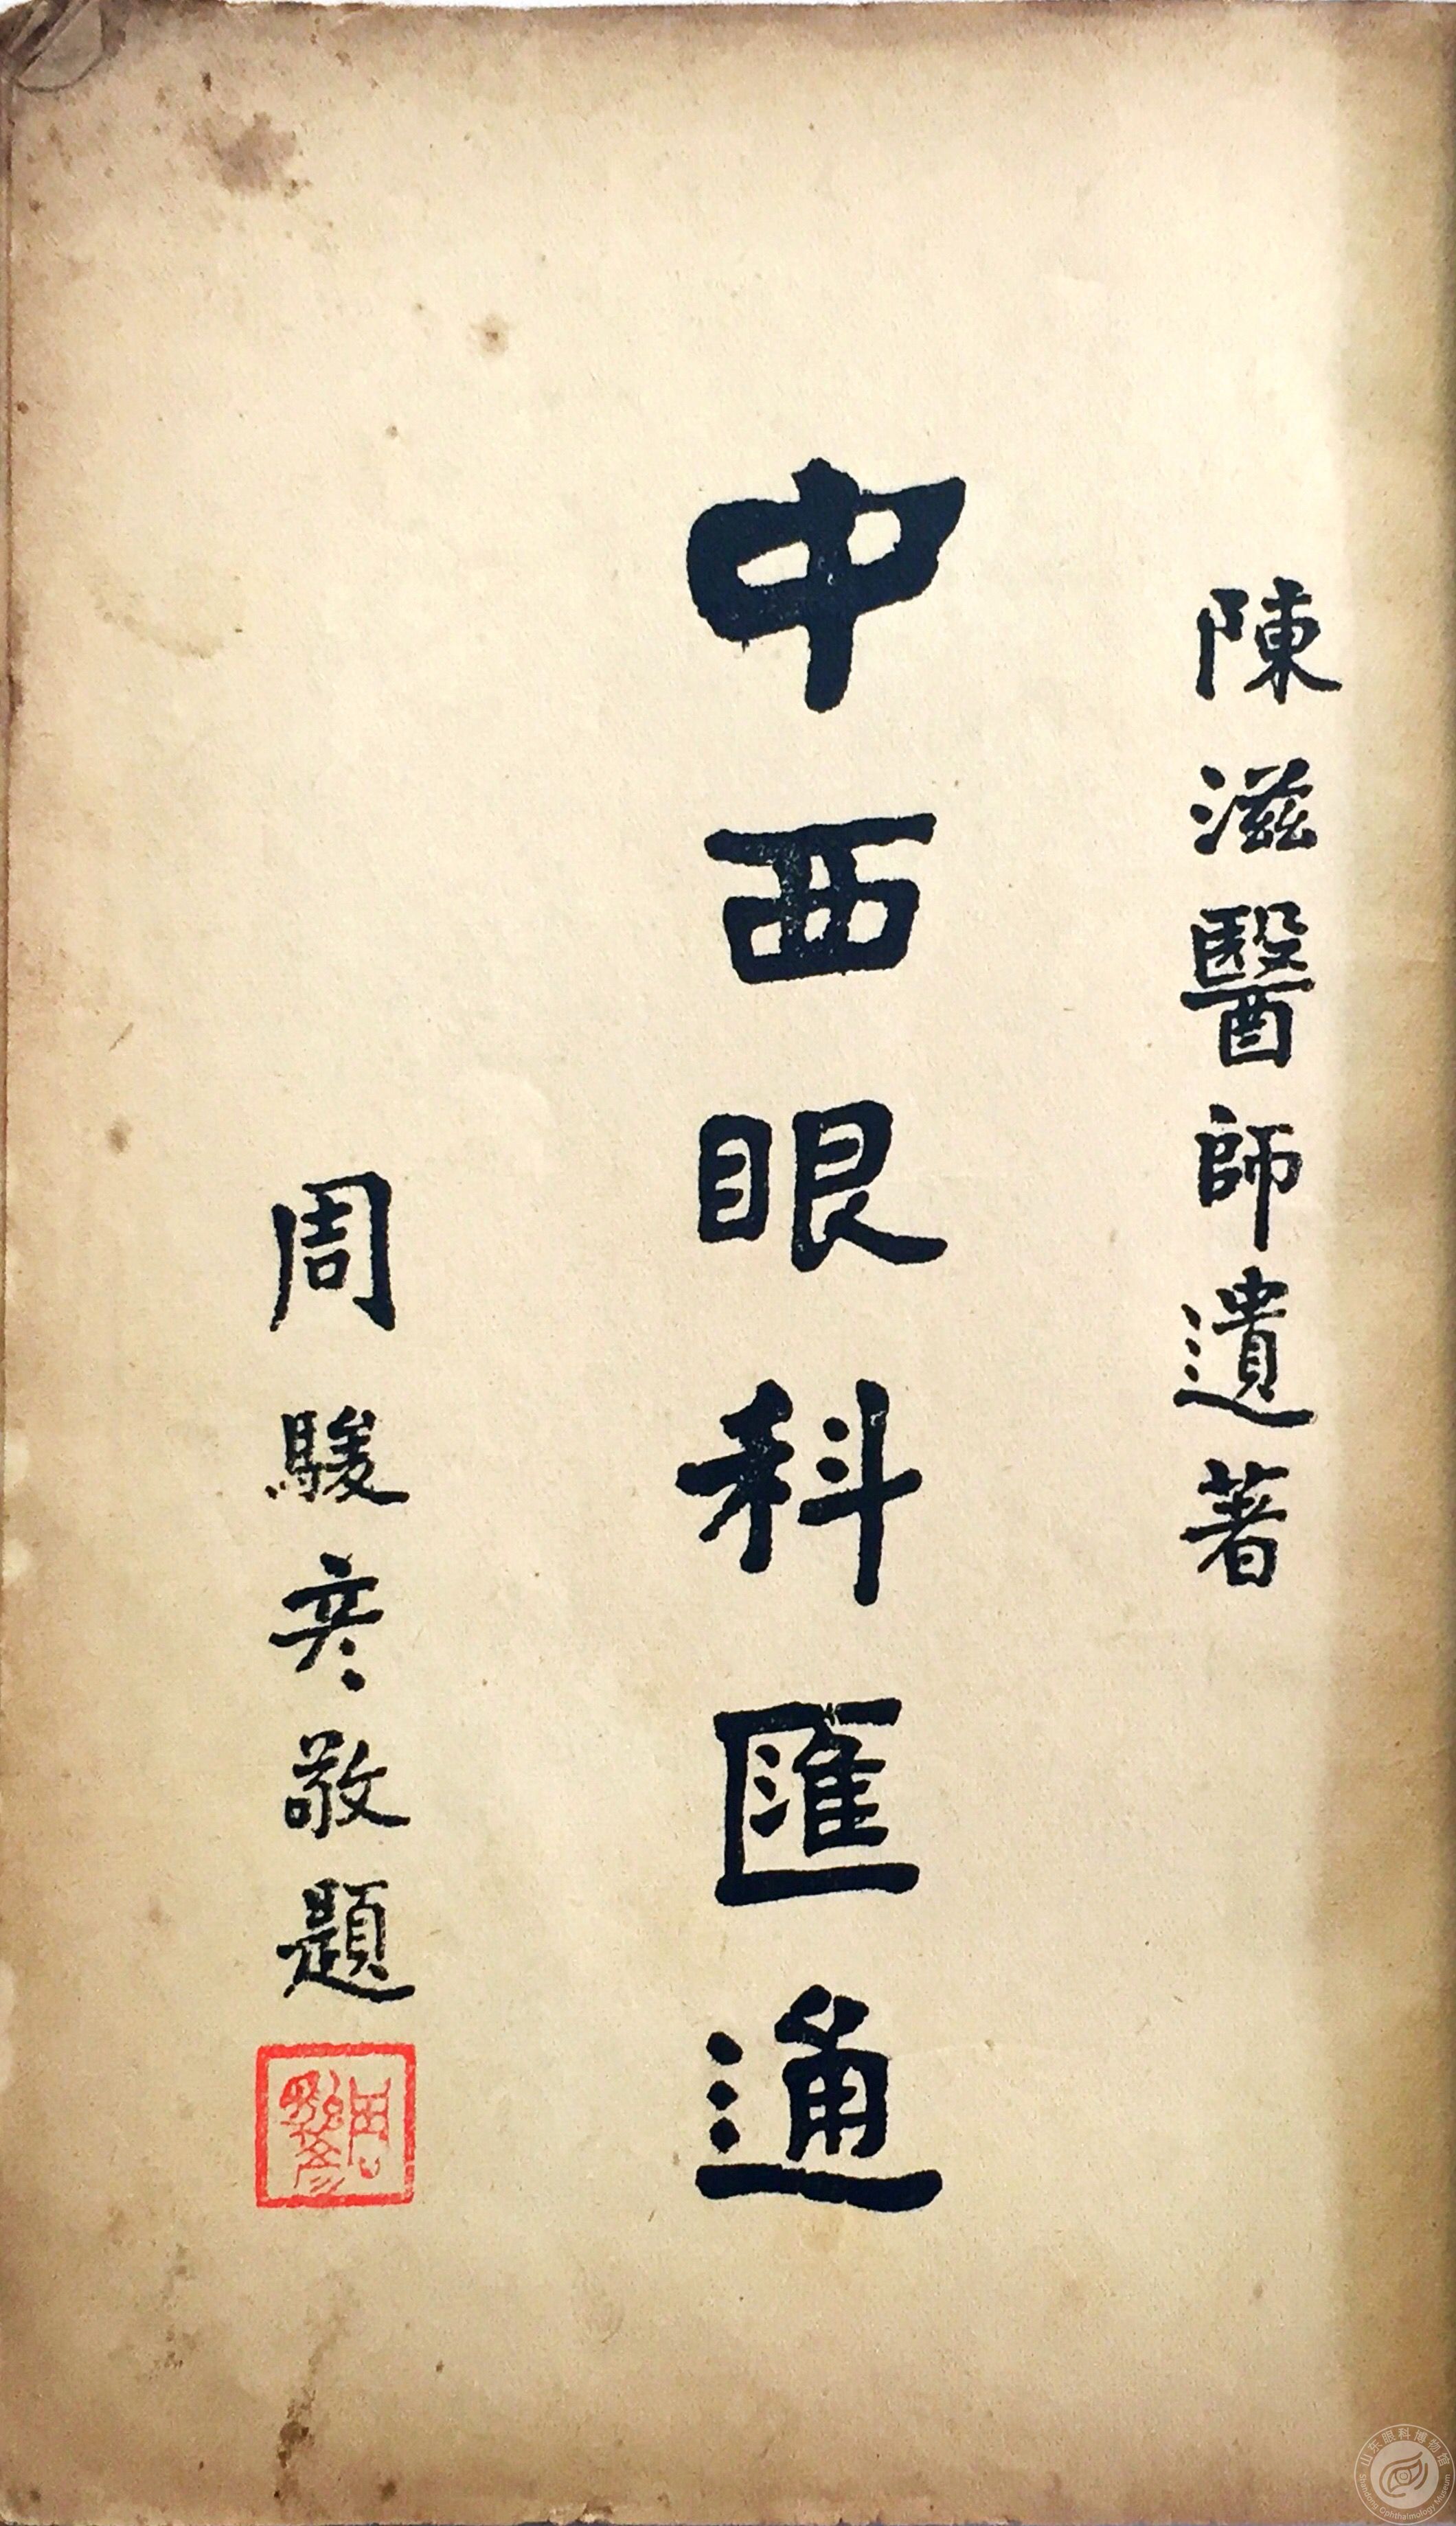 陳滋醫師遺著
中西眼科匯通
周駿彦敬題
周駿彦
山东眼科博物馆
Shandong Ophthalmology Museum